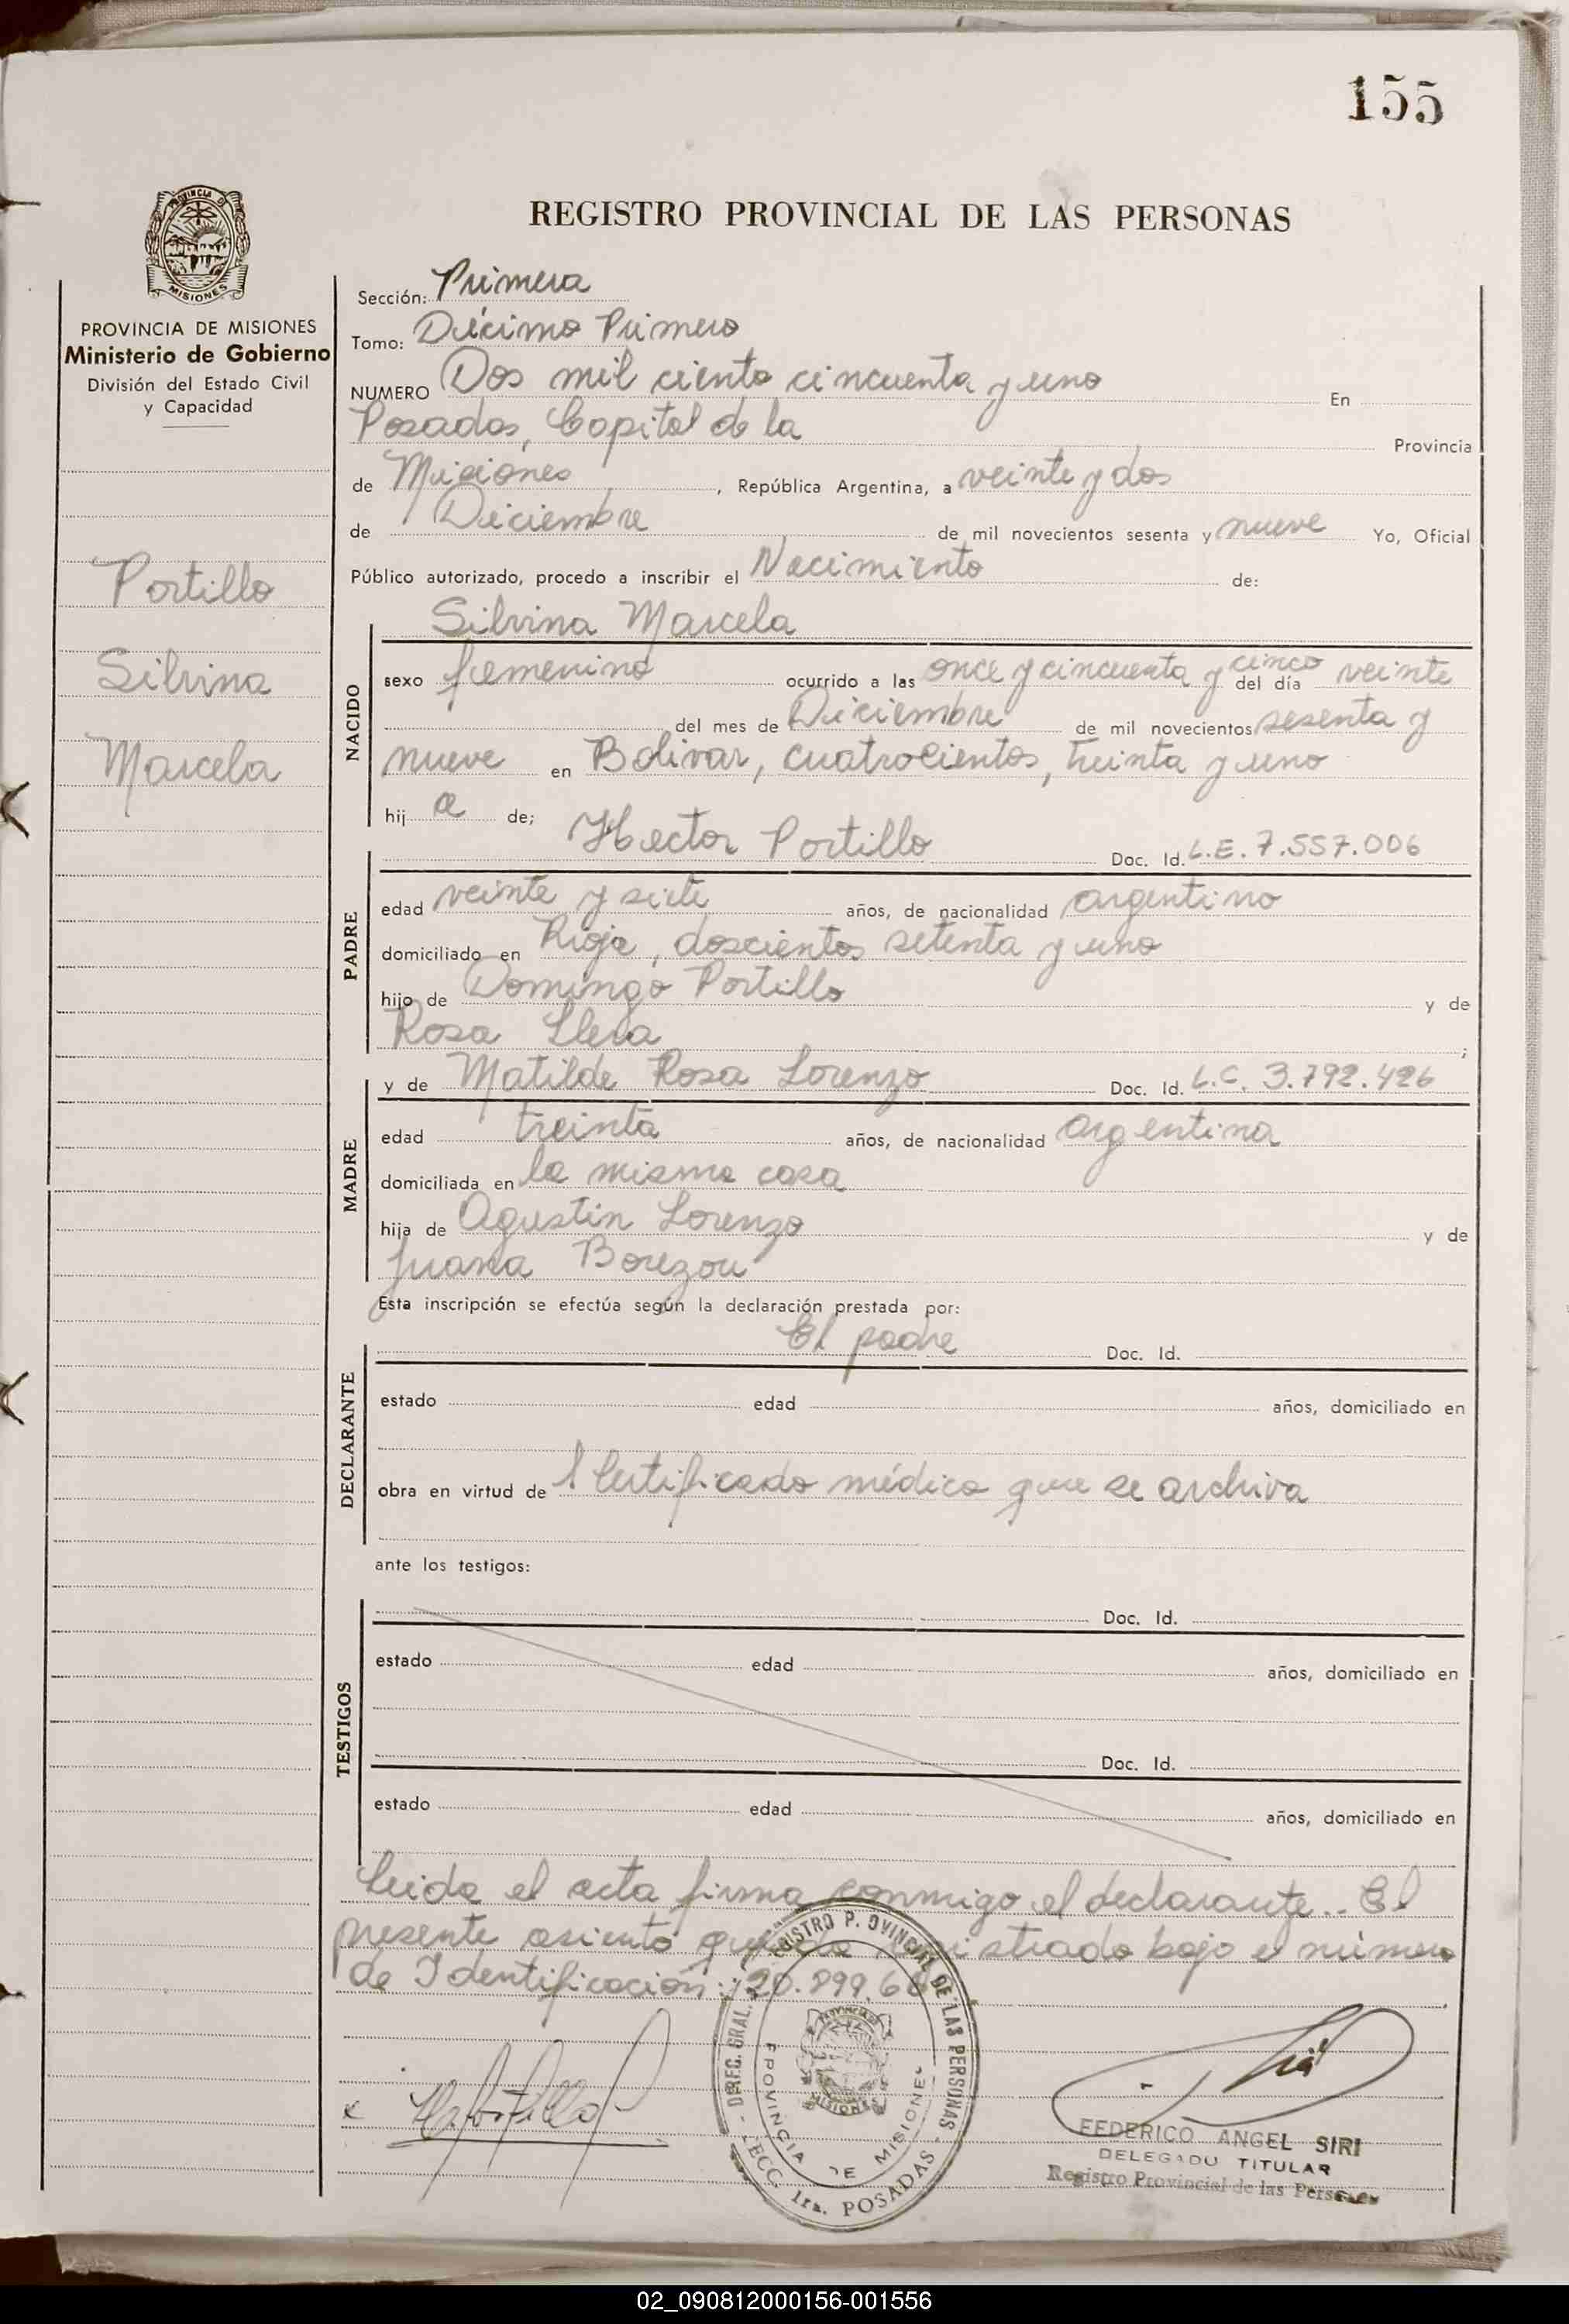 155
PROVINCIA DE
MISIONES
REGISTRO PROVINCIAL DE LAS PERSONAS
PROVINCIA DE MISIONES
Ministerio de Gobierno
División del Estado Civil
y Capacidad
Portillo
Silvina
Marcela
Sección: Primera
Tomo: Décimo Primero
NUMERO Dos mil ciento cincuenta y uno En
Posadas, Capital de la Provincia
de Misiones, República Argentina, a veinte y dos
de Diciembre de mil novecientos sesenta y nueve Yo, Oficial
Público autorizado, procedo a inscribir el Nacimiento de:
NACIDO
Silvina Marcela
sexo femenino ocurrido a las once y cincuenta y cinco del día veinte
del mes de Diciembre de mil novecientos sesenta y
nueve en Bolivar, cuatrocientos, treinta y uno
hij a de;
PADRE
Hector Portillo Doc. Id. L.E. 7.557.006
edad veinte y siete años, de nacionalidad argentino
domiciliado en Rioja, doscientos setenta y uno
hijo de Domingo Portillo y de
Rosa ;
MADRE
y de Matilde Rosa Lorenzo Doc. Id. L.C. 3.792.426
edad treinta años, de nacionalidad argentina
domiciliada en la misma casa
hija de Agustin Lorenzo y de
Juana
Esta inscripción se efectúa según la declaración prestada por:
DECLARANTE
El padre Doc. Id.
estado edad años, domiciliado en
obra en virtud de 1 Certificado médico que se archiva
ante los testigos:
TESTIGOS
Doc. Id.
estado edad años, domiciliado en
Doc. Id.
estado edad años, domiciliado en
Leida el acta firma conmigo el declarante.. El
presente asiento queda registrado bajo el número
de Identificación: 20.899.6
DIREC. GRAL. REGISTRO PROVINCIAL DE LAS PERSONAS - SECC. 1ra. POSADAS -
PROVINCIA DE MISIONES
MISIONES
x HPortillo
FEDERICO ANGEL SIRI
DELEGADO TITULAR
Registro Provincial de las Personas
02_090812000156-001556